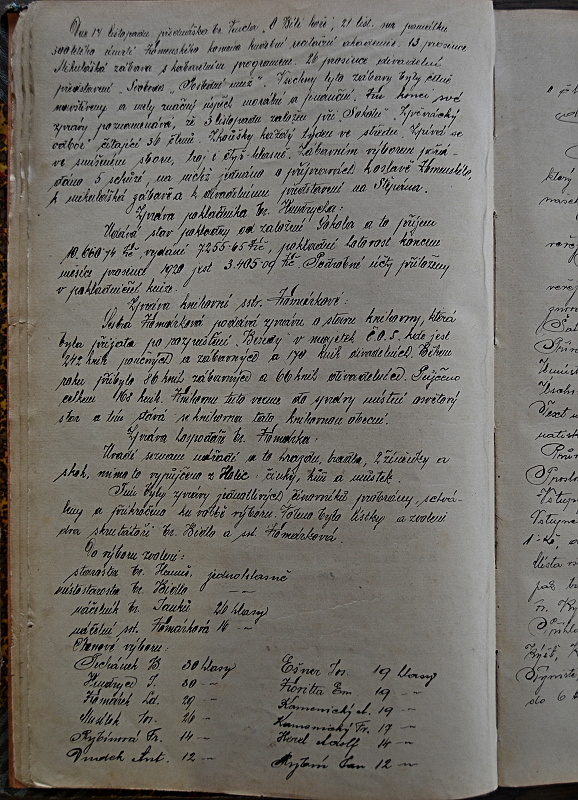 Dne 14 listopadu přednáška br. Jandla „O Bílé hoře", 21 list. na památku
300 letého úmrtí Komenského konala hudební recitační akademie. 13 prosince
Mikulášská zábava s kabaretním programem. 26 prosince divadelní
představení „Svoboda" „Poslední muž". Všechny tyto zábavy byly četně
navštíveny a měly značný úspěch morální a finanční. Ku konci své
zprávy poznamenává, že 3 listopadu založen při „Sokolu" Zpěvácký
odbor čítající 36 členů. Zkoušky každý týden ve středu. Zpívá se
ve smíšeném sboru, troj i čtyř hlasně. Zábavním výborem pořá-
dáno 5 schůzí na nichž jednáno o přípravách k oslavě Komenského,
k mikulášské zábavě a k divadelnímu představení na Štěpána.
Zpráva pokladníka br. Hendrycha:
Udává stav pokladny od založení Sokola a to příjem
10.660·74 Kč, vydání 7255·65 Kč, pokladní hotovost koncem
měsíce prosince 1920 jest 3.405·09 Kč. Podrobné účty přiloženy
v pokladniční knize.
Zpráva knihovní sstr. Komárkové:
Sestra Komárková podává zprávu o stavu knihovny, která
byla přijata po rozpuštění „Besedy" v majetek Č.O.S. kde jest
242 knih poučných a zábavných a 170 knih divadelních. Během
roku přibylo 86 knih zábavných a 66 knih divadelních. Půjčeno
celkem 168 knih. Knihovnu tuto vezme do správy místní osvětový
sbor a tím stává se knihovna tato knihovnou obecní.
Zpráva hospodáře br. Komárka:
Uvádí seznam nářadí a to hrazdu, bradla, 2 žíněnky a
stoh, mimo to vypůjčeno z Holic - činky, kůň a můstek.
Tím byly zprávy jednotlivých činovníků probrány, schvá-
leny a přikročeno ku volbě výboru. Voleno bylo lístky a zvoleni
dva skrutátoři br. Bidlo a sst. Komárková.
Do výboru zvoleni:
starosta br. Hanuš, jednohlasně
místostarosta br. Bidlo -„-
náčelník br. Janků 26 hlasy
náčelní sst. Komárková 16 -„-
Členové výboru:
30 hlasy
Hendrych J. 30 -„-
Komárek Lad. 29 -„-
Jos. 26 -„-
Rybínová Fr. 14 -„-
Ant. 12 -„-
Ešner Jos. 19 hlasy
Em 19 -„-
Kamenický A. 19 -„-
Kamenický Fr. 17 -„-
Adolf 14 -„-
Jan 12 -„-